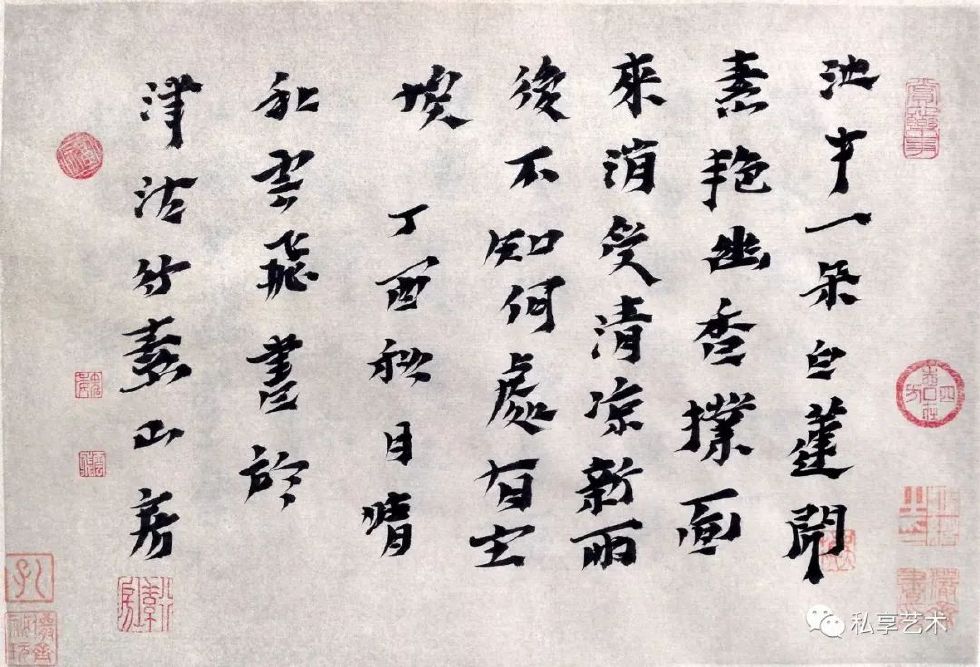 池中一朵白蓮開
素艳幽香撲面
來消受清凉新雨
後不知何處有尘
埃 丁酉秋日晴
孔雲飛書於
津沽竹素山房
孔
私享艺术